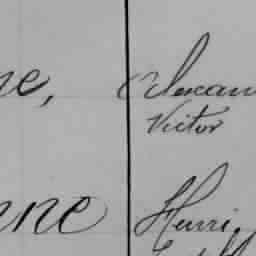 ne, Alexan
Victor
enne Henri,